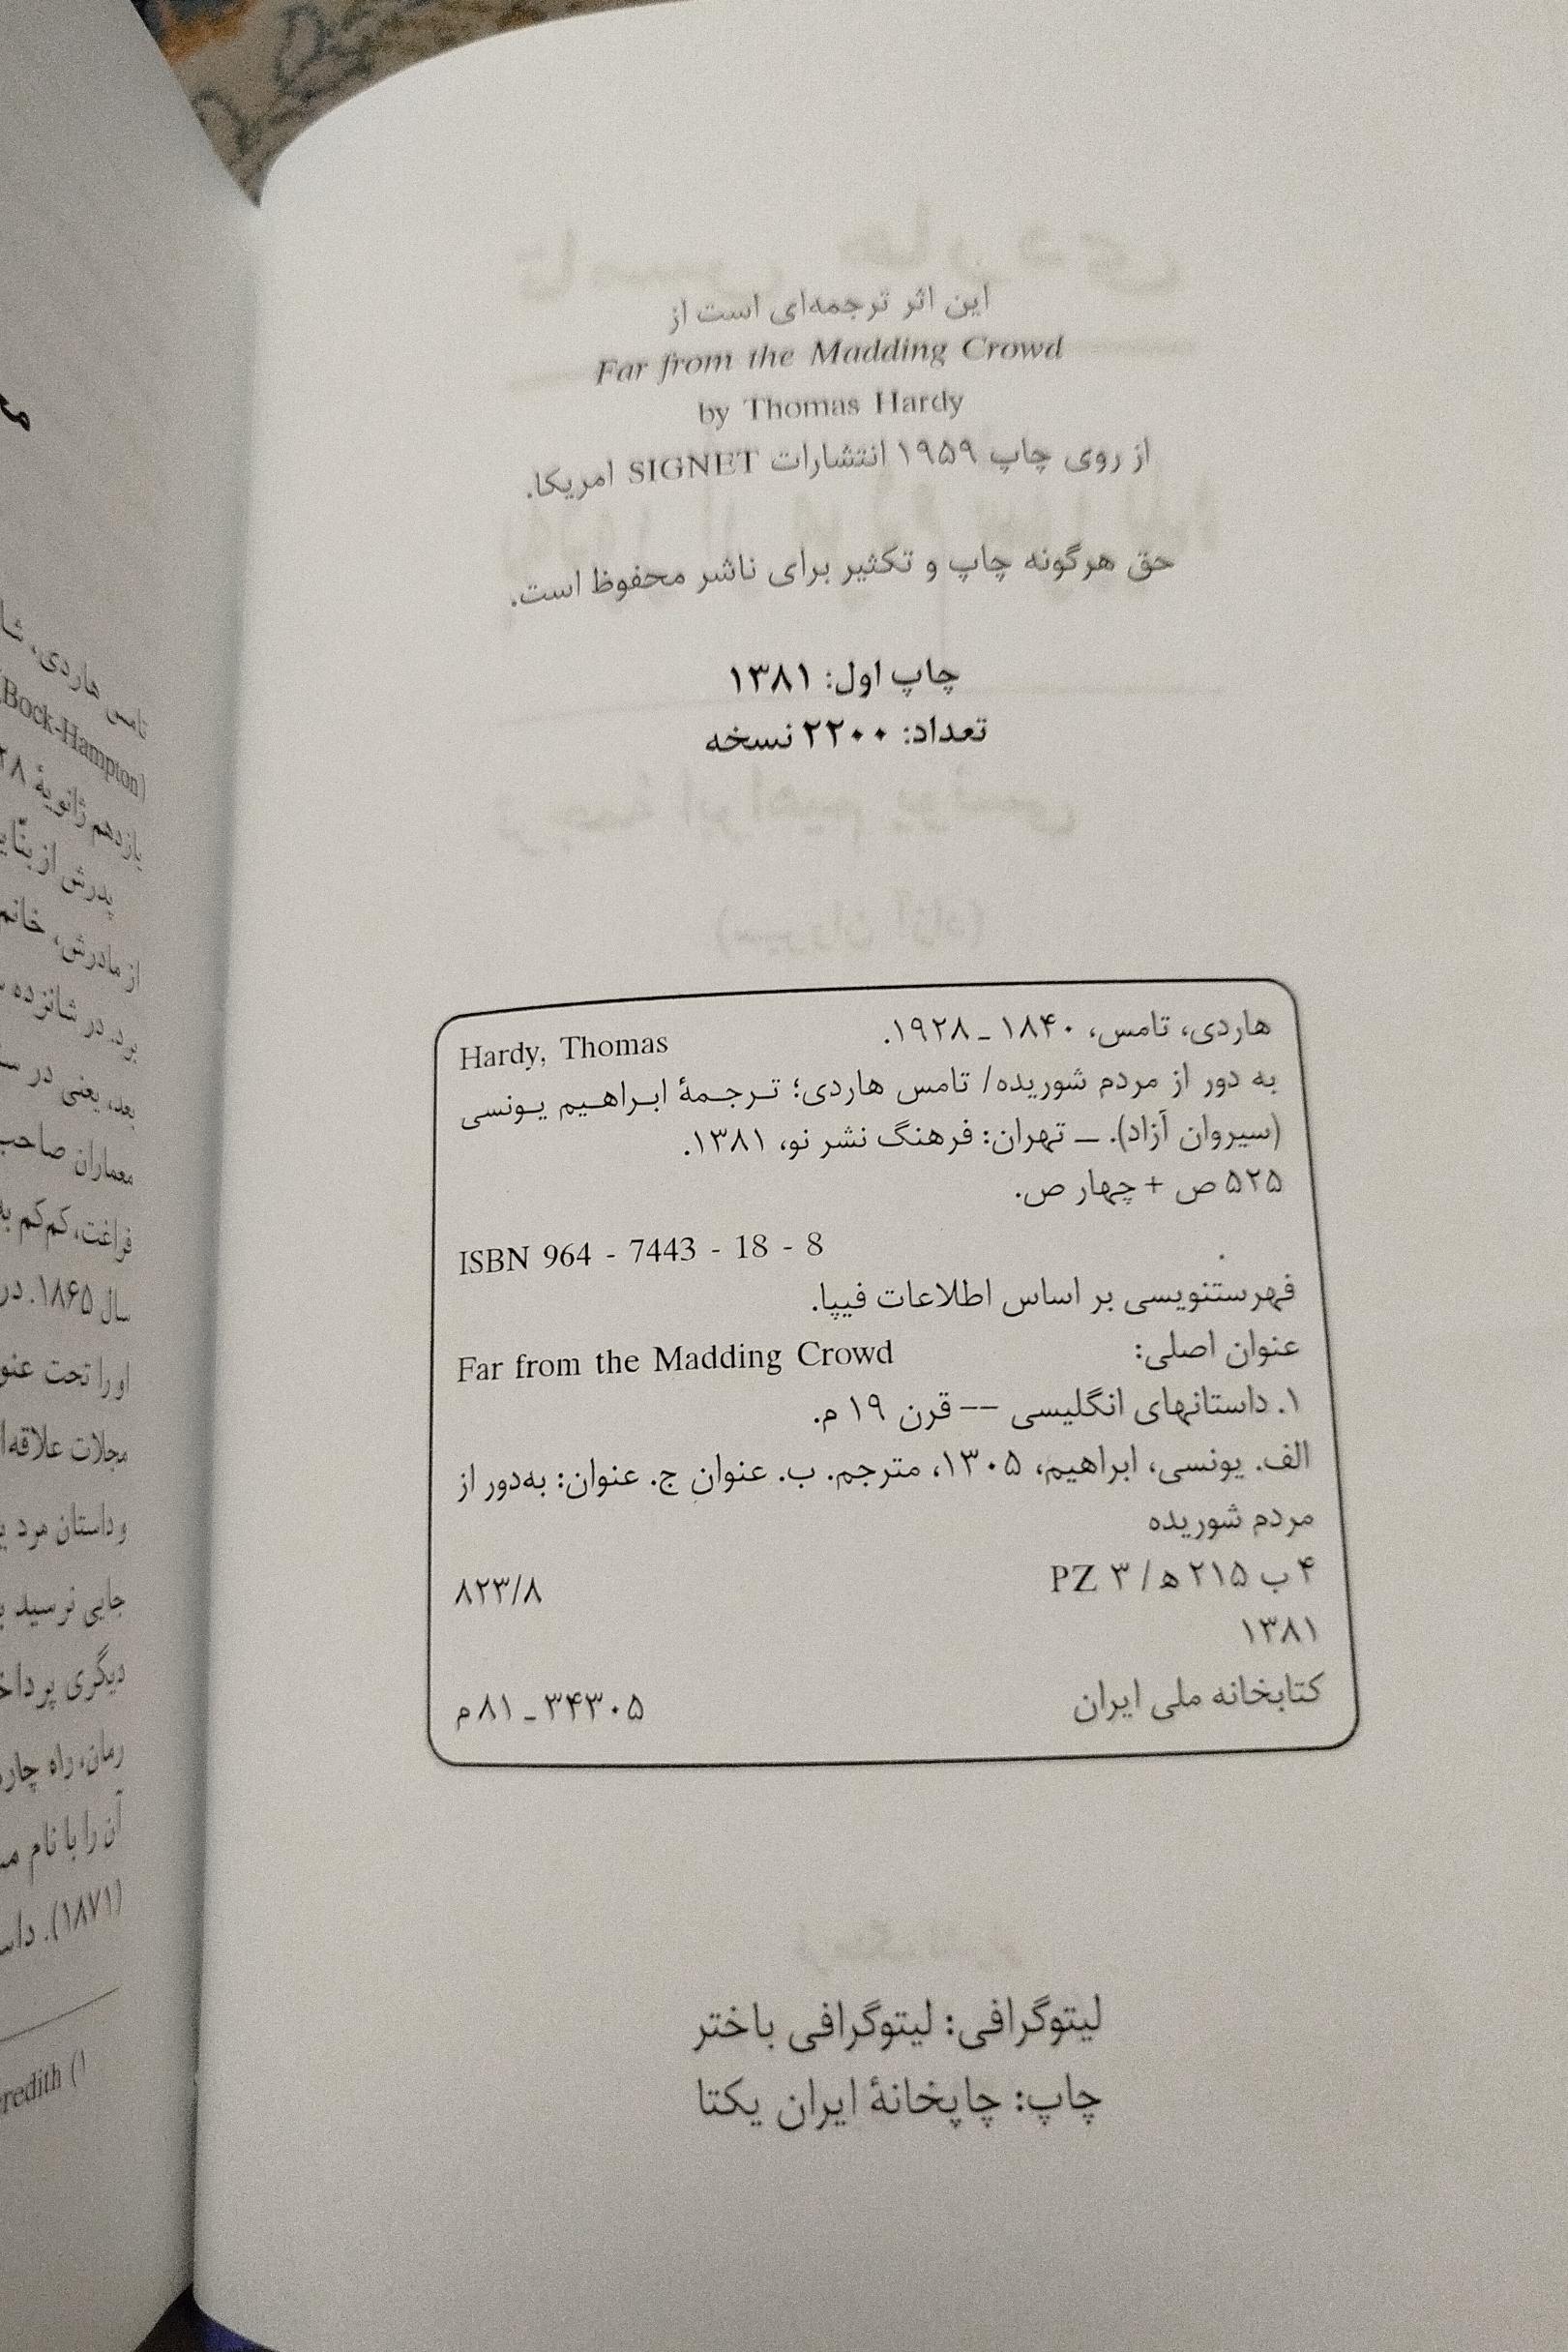 این اثر ترجمه‌ای است از
Far from the Madding Crowd
by Thomas Hardy
از روی چاپ ۱۹۵۹ انتشارات SIGNET امریکا.
حق هرگونه چاپ و تکثیر برای ناشر محفوظ است.
چاپ اول: ۱۳۸۱
تعداد: ۲۲۰۰ نسخه
هاردی، تامس، ۱۸۴۰ ـ ۱۹۲۸. Hardy, Thomas
به دور از مردم شوریده/ تامس هاردی؛ ترجمهٔ ابراهیم یونسی
(سیروان آزاد). ــ تهران: فرهنگ نشر نو، ۱۳۸۱.
۵۲۵ ص + چهار ص.
ISBN 964 - 7443 - 18 - 8
فهرستنویسی بر اساس اطلاعات فیپا.
عنوان اصلی: Far from the Madding Crowd
۱. داستانهای انگلیسی -- قرن ۱۹ م.
الف. یونسی، ابراهیم، ۱۳۰۵، مترجم. ب. عنوان ج. عنوان: به‌دور از
مردم شوریده
۴ ب ۲۱۵ ه‍ / ۳ PZ ۸۲۳/۸
۱۳۸۱
کتابخانه ملی ایران ۳۴۳۰۵ ـ ۸۱ م
لیتوگرافی: لیتوگرافی باختر
چاپ: چاپخانهٔ ایران یکتا
تامس هاردی،
(Bock-Hampton)
یازدهم ژانویهٔ
پدرش از
از مادرش، خانم
برد. در شانزده
بعد، یعنی در
معماران صاحب
فراغت، کم‌کم
سال ۱۸۶۵. در
او را تحت
مجلات
و داستان مرد
جایی نرسید
دیگری
رمان، راه
آن را با نام
(۱۸۷۱).